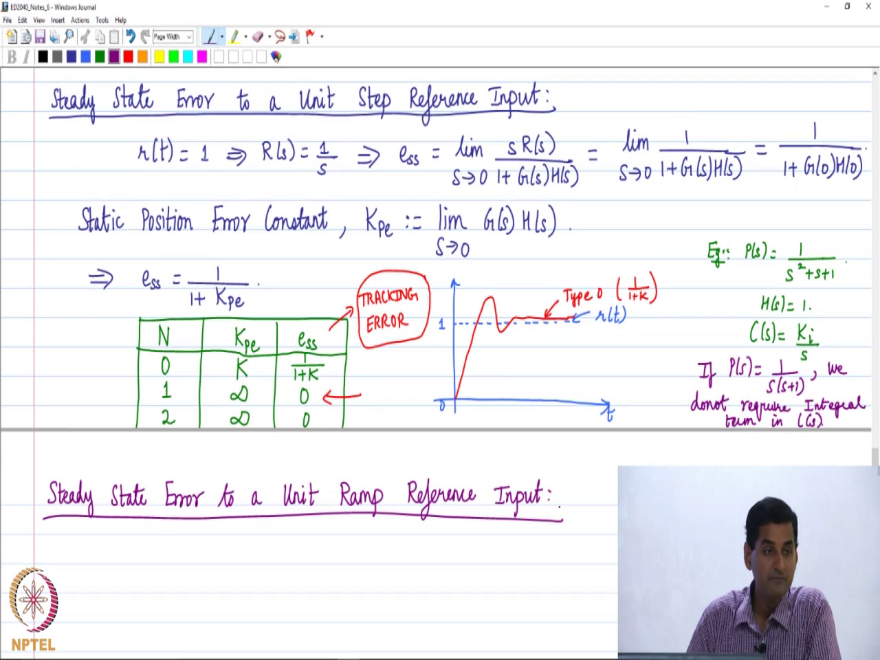 ED2040_Notes_6 - Windows Journal
File Edit View Insert Actions Tools Help
Page Width
B I
Steady State Error to a Unit Step Reference Input:
r(t) = 1 ⇒ R(s) = 1/s ⇒ ess = lim S→0 sR(s)/(1+G(s)H(s)) = lim S→0 1/(1+G(s)H(s)) = 1/(1+G(0)H(0)).
Static Position Error Constant, Kpe := lim S→0 G(s)H(s).
⇒ ess = 1/(1+Kpe).
N Kpe ess
0 K 1/(1+K)
1 ∞ 0
2 ∞ 0
TRACKING
ERROR
Type 0 (1/(1+K))
r(t)
1
0
t
Eg:: P(s) = 1/(s²+s+1).
H(s) = 1.
C(s) = Ki/s
If P(s) = 1/(s(s+1)), we
donot require Integral
term in C(s).
Steady State Error to a Unit Ramp Reference Input:
NPTEL